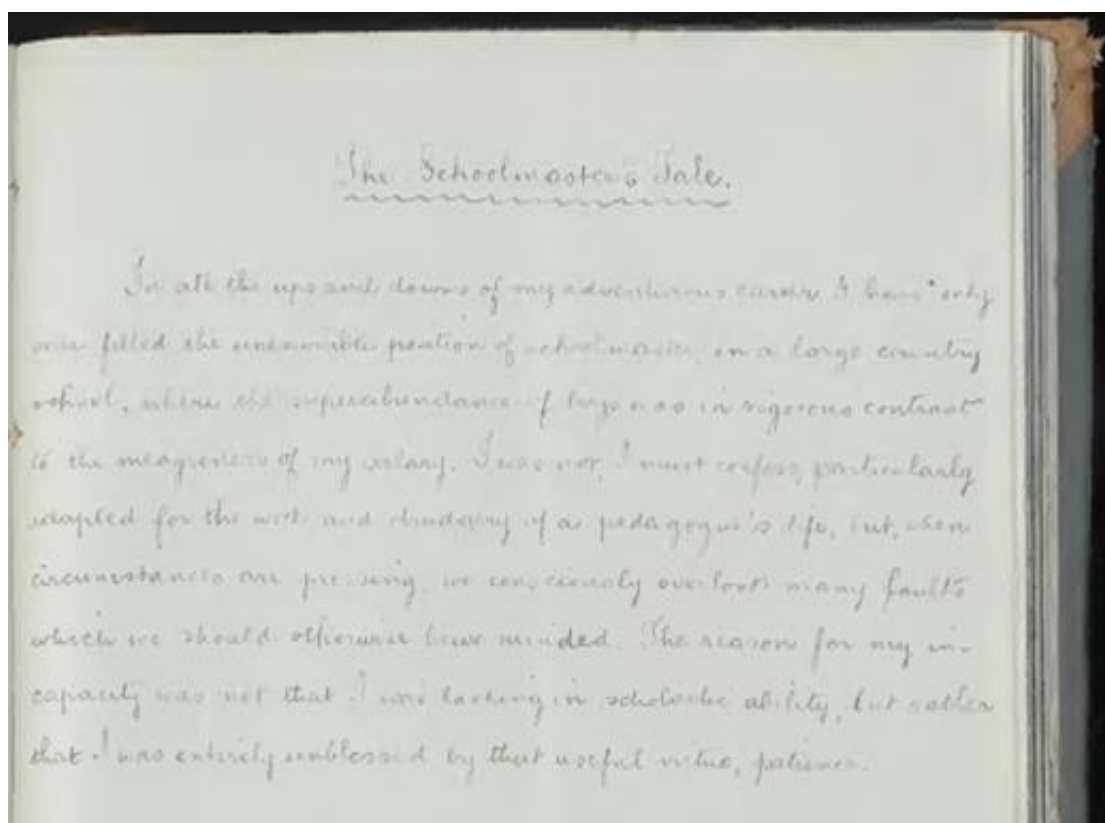 The Schoolmaster's Tale.
In all the ups and downs of my adventurous career I have only
once filled the unenviable position of schoolmaster in a large country
school, where the superabundance of boys was in vigorous contrast
to the meagreness of my salary. I was not, I must confess, particularly
adapted for the work and drudgery of a pedagogue's life, but, when
circumstances are pressing, we consciously overlook many faults
which we should otherwise have minded. The reason for my in-
capacity was not that I was lacking in scholastic ability, but rather
that I was entirely unblessed by that useful virtue, patience.